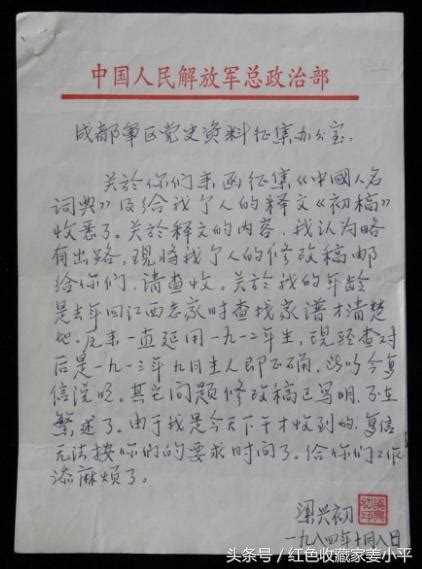 中国人民解放军总政治部
成都军区党史资料征集办公室：
关於你们来函征集《中國人名
词典》及给我个人的释文《初稿》
收悉了。关於释文的内容，我认为略
有出路，现将我个人的修改稿邮
给你们，请查收。关於我的年龄
是去年回江西老家时查找家谱才清楚
地。原来一直延用一九一二年生，现经查对
后是一九一三年九月生人即正确，
信说明。其它问题修改稿已写明，不在
繁述了。由于我是今天下午才收到的，复信
无法按你们的要求时间了。给你们工作
添麻烦了。
梁兴初
一九八四年十月八日
头条号/红色收藏家姜小平